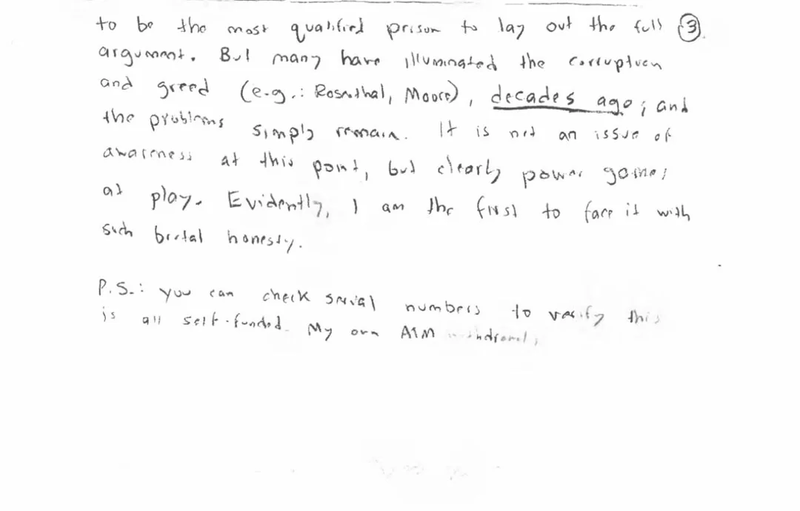 to be the most qualified prison to lay out the full ③.
argument. But many have illuminated the corruption
and greed (e.g.: Rosenthal, Moore), decades ago; and
the problems simply remain. It is not an issue of
awareness at this point, but clearly power games
at play. Evidently, I am the first to face it with
such brutal honesty.
P.S.: you can check serial numbers to verify this
is all self-funded. My own ATM withdrawals